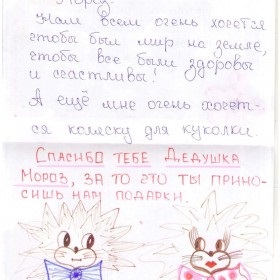 Мороз.
Нам всем очень хочется
чтобы был мир на земле,
чтобы все были здоровы
и счастливы!
А ещё мне очень хочет-
ся коляску для куколки.
Спасибо тебе Дедушка
Мороз, за то это ты прино-
сишь нам подарки.